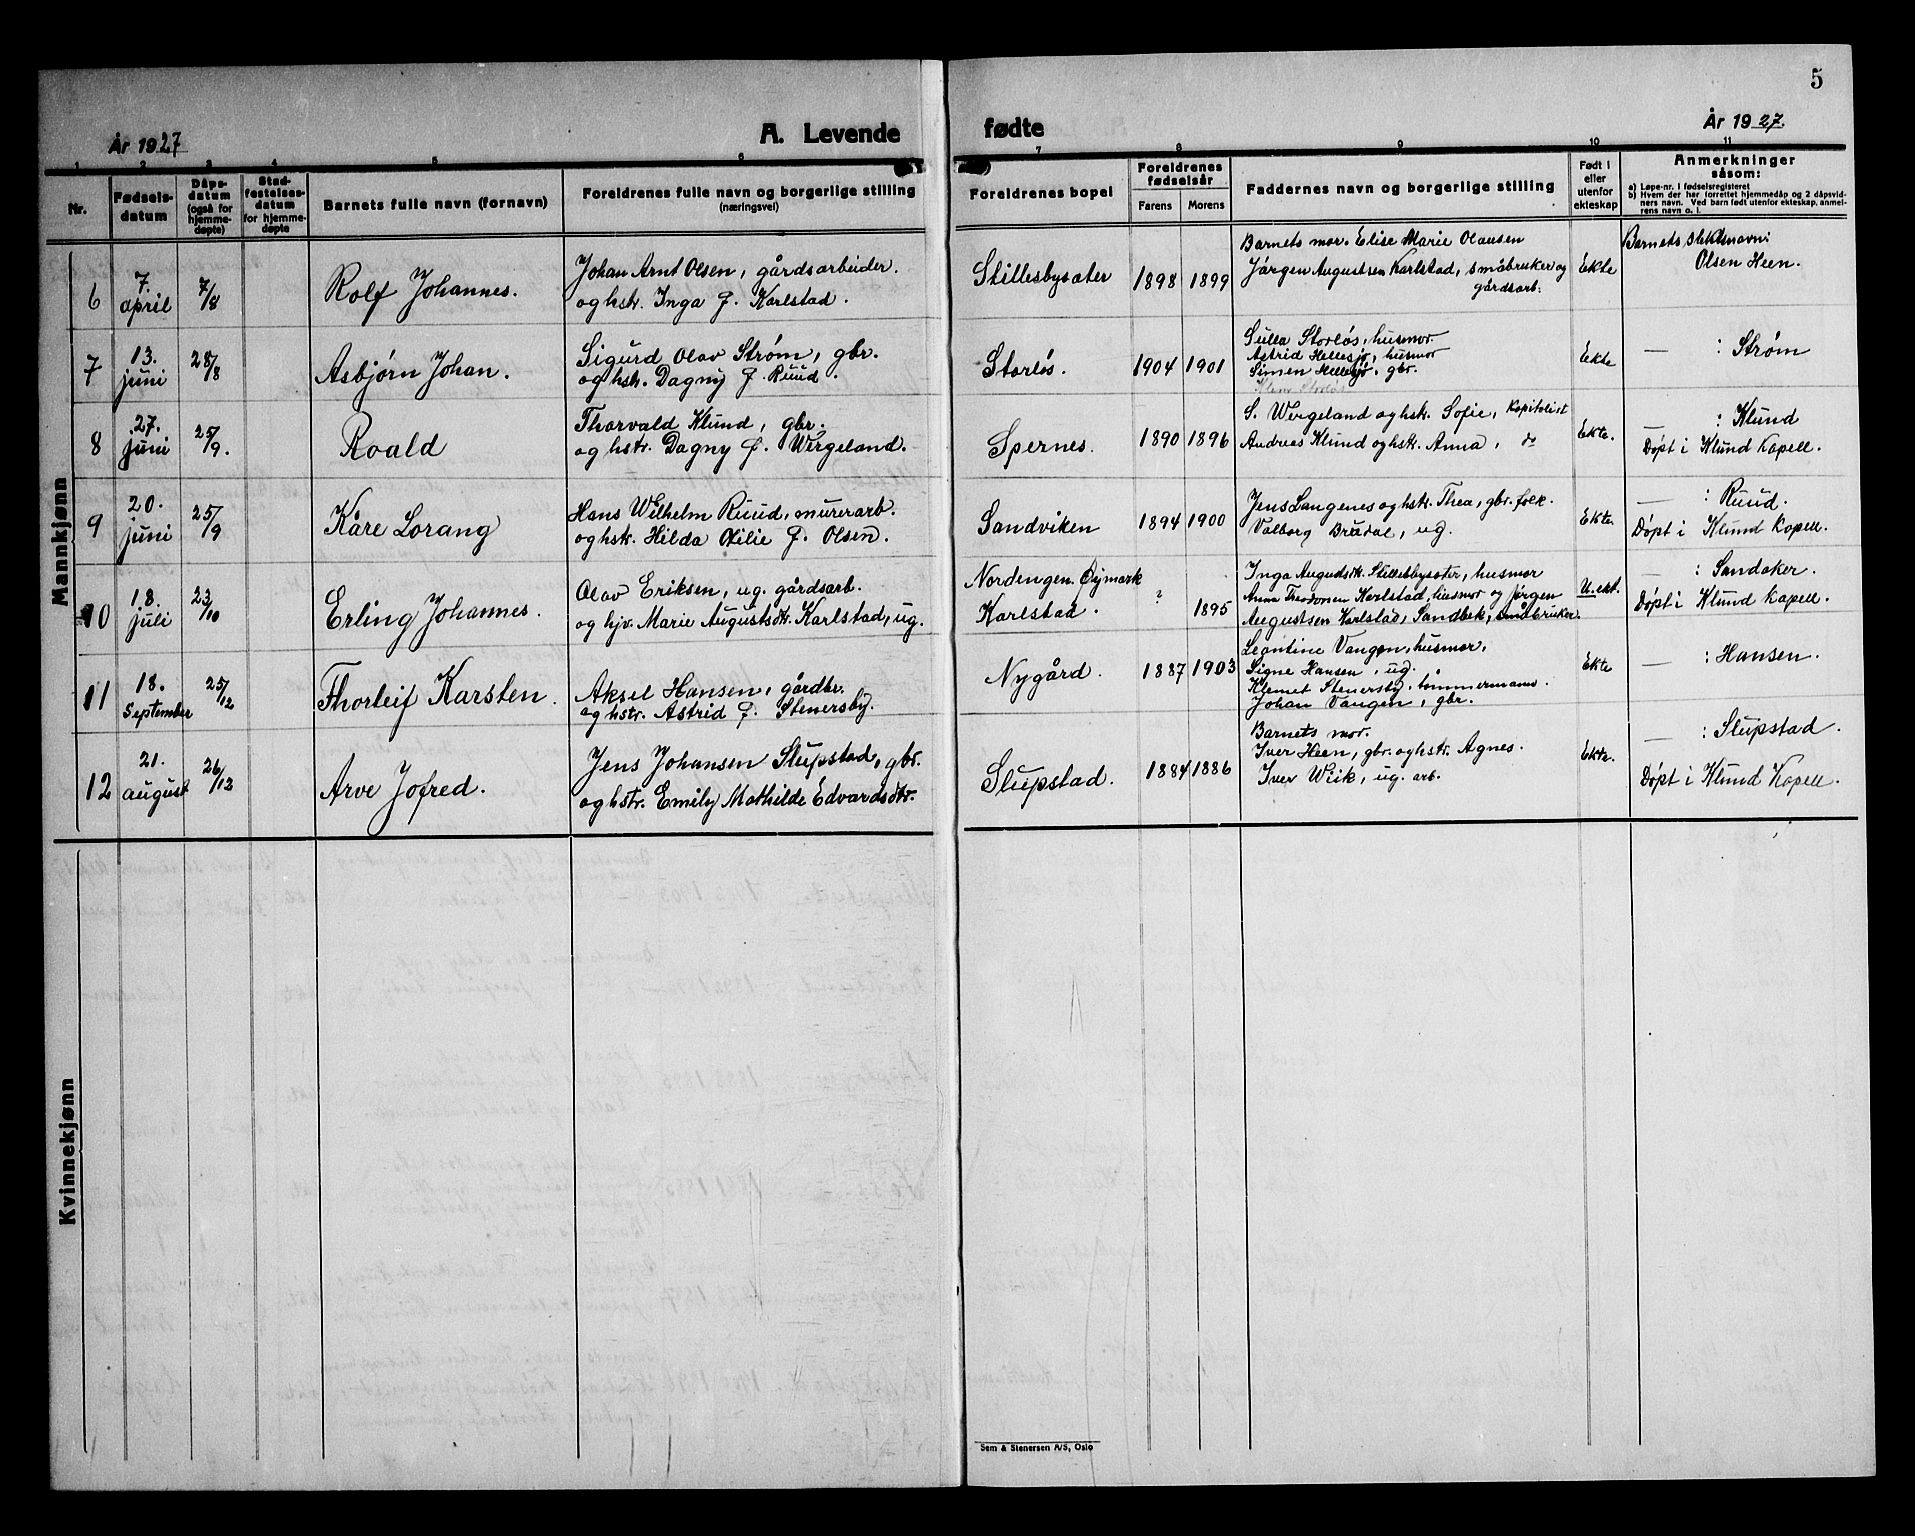 5
År 1927
A. Levende fødte
År 1927.
1 2 3 4 5 6 7 8 9 10 11
Nr.
Fødselsdatum
Dåpsdatum (også for hjemmedøpte)
Stadfestelsesdatum for hjemmedøpte
Barnets fulle navn (fornavn)
Foreldrenes fulle navn og borgerlige stilling
(næringsvei)
Foreldrenes bopel
Foreldrenes fødselsår
Farens Morens
Faddernes navn og borgerlige stilling
Født i eller utenfor ekteskap
Anmerkninger
såsom:
a) Løpe-nr. i fødselsregisteret
b) Hvem der har forrettet hjemmedåp og 2 dåpsvidners navn. Ved barn født utenfor ekteskap, anmelrens navn o. l.
Mannkjønn
6
7. april
7/8
Rolf Johannes.
Johan Arnt Olsen, gårdsarbeider.
og hstr. Inga f. Karlstad.
Stillesbysæter
1898 1899
Barnets mor. Elise Marie Olausen
Jørgen Augustsen Karlstad, småbruker og
gårdsarb:
Ekte
Barnets slektsnavn:
Olsen Heen.
7
13. juni
28/8
Asbjørn Johan.
Sigurd Olav Strøm, gbr.
og hstr. Dagny f. Ruud.
Storløs.
1904 1901
Gulla Storløs, husmor.
Astrid Hellesjø, husmor
Simen Hellesjø, gbr.
Klem Storløs
Ekte
— : Strøm
8
27. juni
25/9.
Roald
Thorvald Klund, gbr.
og hstr. Dagny f. Wergeland.
Spernes.
1890 1896
S. Wergeland og hstr. Sofie, kapitalist
Andreas Klund og hstr. Anna, do
Ekte.
— : Klund
Døpt i Klund Kapell.
9
20. juni
25/9
Kåre Lorang
Hans Wilhelm Ruud, murerarb.
og hstr. Hilda Otilie f. Olsen.
Sandviken
1894 1900
Jens Langenes og hstr. Thea, gbr. folk.
Valborg Brudal, ug.
Ekte.
— : Ruud.
Døpt i Klund Kapell.
10
18. juli
23/10
Erling Johannes.
Olav Eriksen, ug. gårdsarb.
og hjv. Marie Augustsdtr. Karlstad, ug.
Nordengen. Øymark
Karlstad.
? 1895
Inga Augustdtr. Stillebbysæter, husmor
Anna Theodorsen Karlstad, husmor og Jørgen
Augustsen Karlstad, Sandbek, småbruker.
U.ekt.
— : Sandaker.
Døpt i Klund Kapell.
11
18. September
25/12
Thorleif Karsten.
Aksel Hansen, gårdbr.
og hstr. Astrid f. Stenersby.
Nygård.
1887 1903
Leontine Vangen, husmor,
Signe Hansen, ug.
Klemet Stenersby, tømmermann.
Johan Vangen, gbr.
Ekte
— : Hansen.
12
21. august
26/12
Arve Jofred.
Jens Johansen Slupstad, gbr.
og hstr. Emily Mathilde Edvardsdtr.
Slupstad.
1884 1886
Barnets mor.
Iver Heen, gbr. og hstr. Agnes.
Iver Wiik, ug. arb.
Ekte.
— : Slupstad.
Døpt i Klund Kapell.
Kvinnekjønn
Sem & Stenersen A/S, Oslo